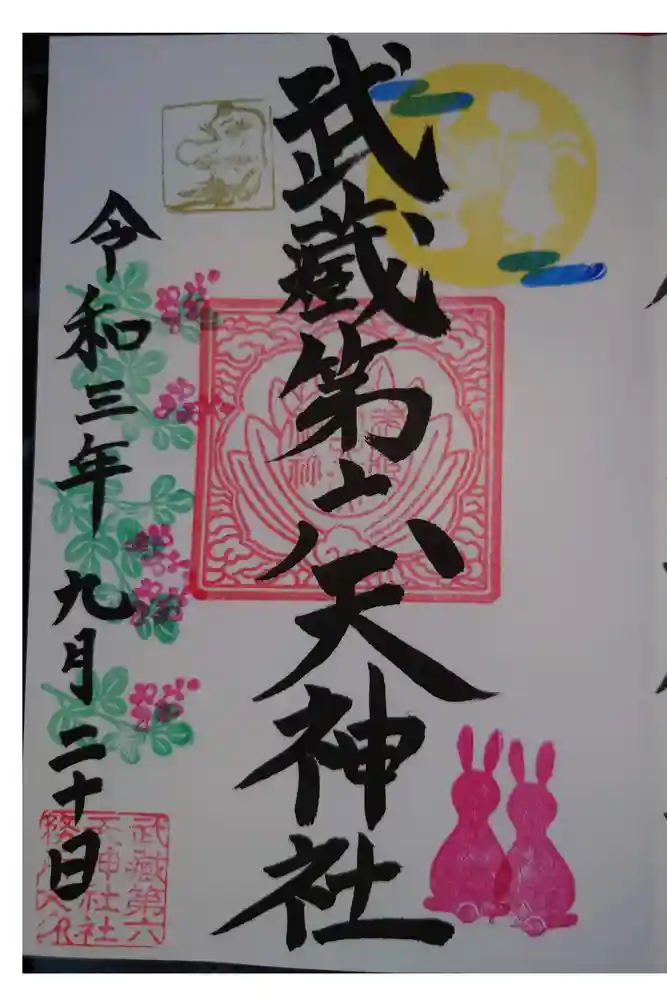 武蔵第六天神社
令和三年九月二十日
武蔵第六
天神社社